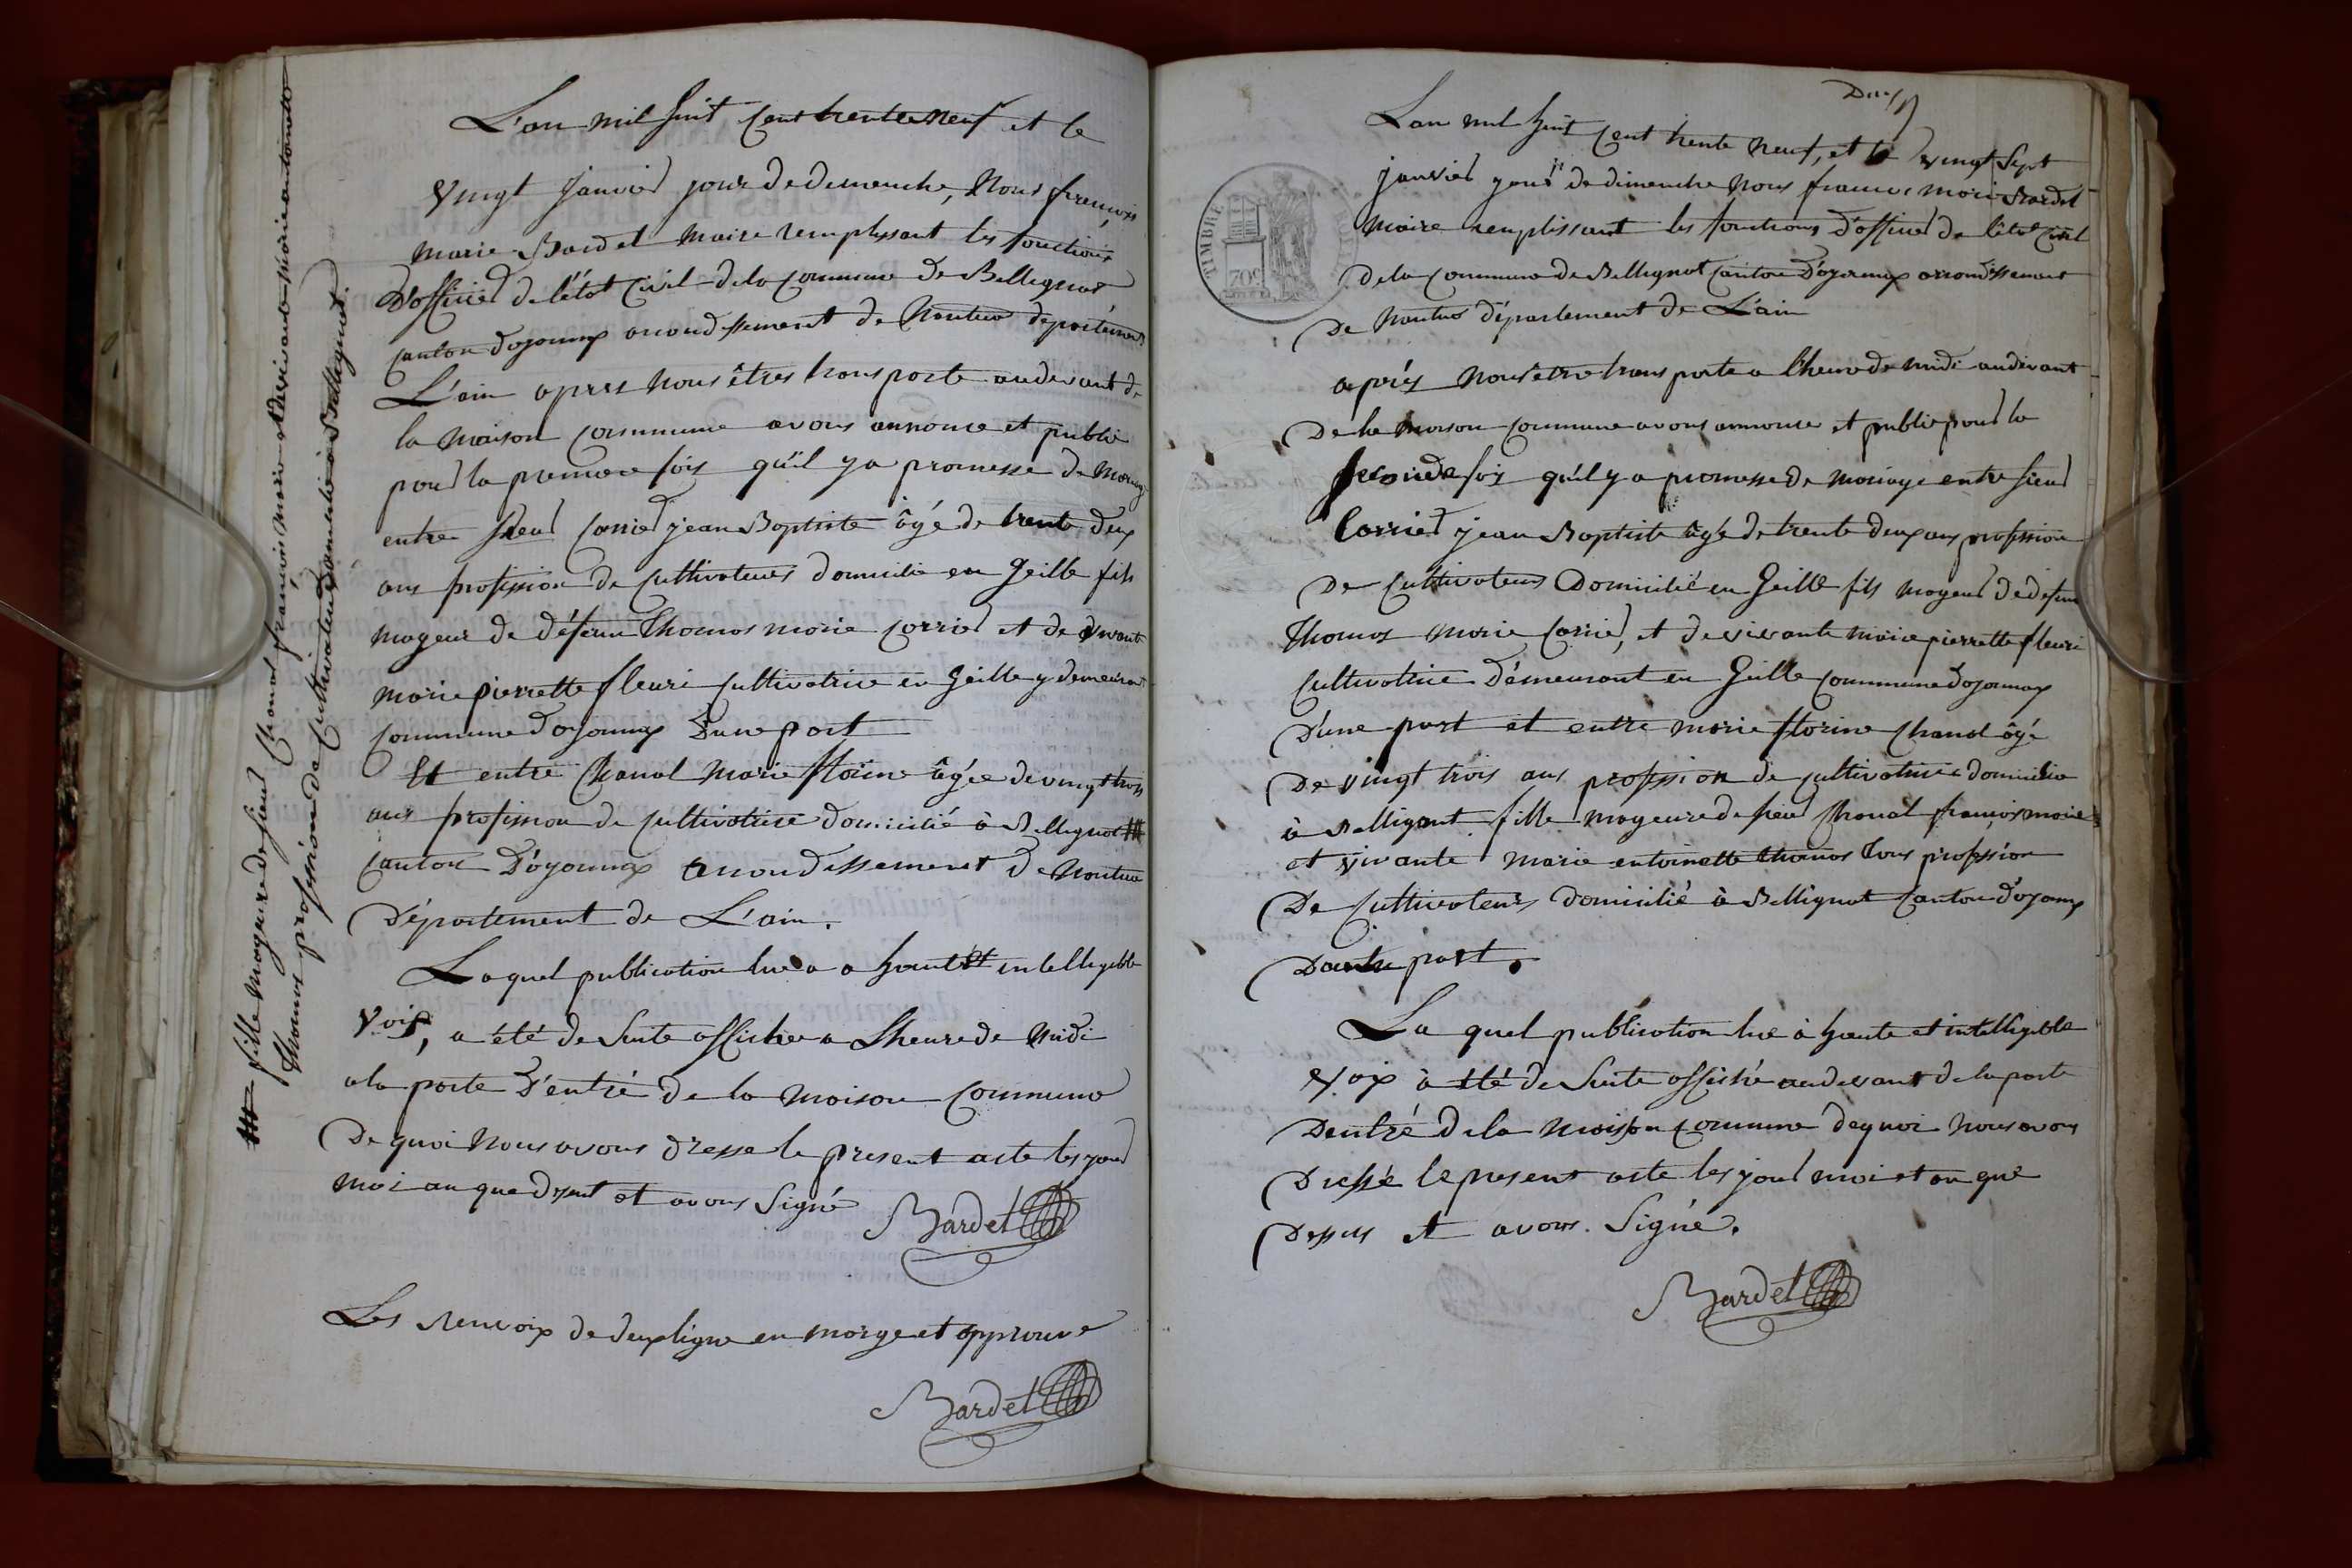 L'an mil huit cent trente neuf et le
vingt janvier jour de dimenche, Nous françois
marie Bardet maire remplissant les fonctions
D'officier de l'état Civil de la commune de Bellignat
canton doyonnax arrondissement de Nantua département
L'ain apres nous êtres transporte audevant de
la maison commune avons annonce et publie
pour la premiere fois qu'il y a promesse de mariage
entre sieur Carrier jean Baptiste âgé de trente deux
ans profession de cultivateur domicilie en Geille fils
mageur de défeun Thomas marie Carrier et de vivante
marie pierrette fleuri cultivatrice en Geille y demeurant
commune doyonnax Dune part
Et entre Chanal Marie florine âgée de vingt trois
ans profession de cultivatrice domicilié à Bellignat #
canton D'oyonnax arrondissement de Nantua
Département de L'ain.
Laquel publication lue a haute et intelligible
Voix, a été de suite affiche a Lheure de midi
a la porte d'entré de la maison commune
De quoi nous avons dresse le present acte les jour
moi an que dsent et avons signé
Bardet
Les renvoix de deux ligne en marge et approuve
Bardet
# fille mageure de sieur Chanal françois marie et de vivante marie antoinette
thomas profession de cultivateur domicilié à Bellignat.
Deux
L'an mil huit cent trente neuf, et le vingt sept
janvier jour de dimenche nous francois marie Bardet
maire remplissant les fonctions d'officier de l'état civil
de la commune de Bellignat canton D'oyonnax arrondissement
De Nantua département de L'ain
TIMBRE
70c
après nous etre transporte a lheure de midi audevant
De la maison commune avons annonce et publie pour la
seconde fois qu'il y a promesse de mariage entre sieur
Carrier jean Baptiste âgé de trente deux ans profession
De cultivateur Domicilié en Geille fils mageur de defeun
Thomas marie Carrier, et de vivante marie pierrette fleuri
cultivatrice Démeurant en Geille commune doyonnax
D'une part et entre marie florine Chanal âgé
De vingt trois ans profession de cultivatrice domicilie
à Bellignat fille mageure de sieur Chanal françois marie
et vivante marie entoinette thomas tous profession
De cultivateurs domicilié à Bellignat canton d'oyonnax
Dautre part.
La quel publication lue à haute et intelligible
voix à été de suite affiché audevant de la porte
Dentré de la maison commune de quoi nous avons
Dressé le present acte les jour moi et an que
Dessus et avons signé.
Bardet